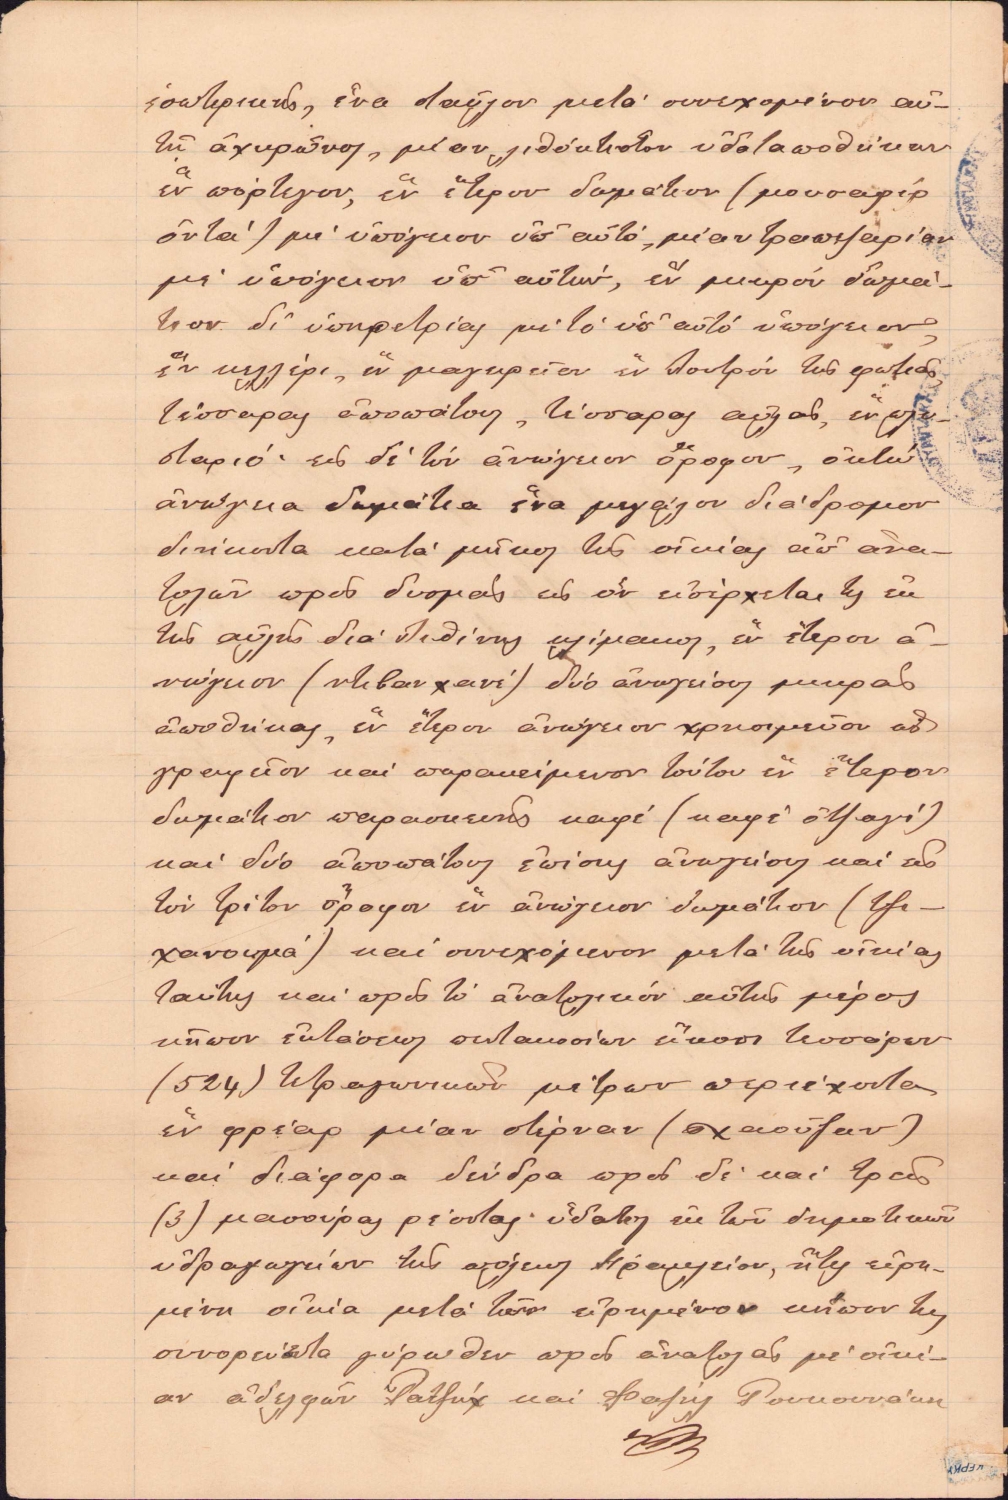 ἐσωτερικῆς, ἕνα σταῦλον μετὰ συνεχομένου αὐ-
τῇ ἀχυρῶνος, μίαν λιθόκτιστον ὑδαταποθήκην
ἓν πόρτεγον, ἓν ἕτερον δωμάτιον (μουσαφίρ
ὀντά) μὲ ὑπόγειον ὑπ' αὐτό, μίαν τραπεζαρίαν
μὲ ὑπόγειον ὑπ' αὐτήν, ἓν μικρόν δωμά-
τιον δι' ὑπηρετρίας μὲ τό ὑπ' αὐτό ὑπόγειον,
ἓν κελλέρι, ἓν μαγειρεῖον ἓν λουτρόν τῆς φωτιᾶς,
τέσσαρας ἀποπάτους, τέσσαρας αὐλάς, ἓν πλυ-
σταριό· εἰς δὲ τόν ἀνώγειον ὄροφον, ὀκτώ
ἀνώγεια δωμάτια ἕνα μεγάλον διάδρομον
διήκοντα κατά μῆκος τῆς οἰκίας ἀπ' ἀνα-
τολῶν πρὸς δυσμάς εἰς ὅν εἰσέρχεταί τις ἐκ
τῆς αὐλῆς διά λιθίνης κλίμακος, ἓν ἕτερον ἀ-
νώγειον (ντιβανχανέ) δύο ἀνωγείους μικράς
ἀποθήκας, ἓν ἕτερον ἀνώγειον χρησιμεῦον ὡς
γραφεῖον καί παρακείμενον τούτου ἓν ἕτερον
δωμάτιον παρασκευῆς καφέ (καφέ ὀτζαγί)
καί δύο ἀποπάτους ἐπίσης ἀνωγείους καί εἰς
τόν τρίτον ὄροφον ἓν ἀνώγειον δωμάτιον (τζι-
χανουμά) καί συνεχόμενον μετά τῆς οἰκίας
ταύτης καί πρὸς τό ἀνατολικόν αὐτῆς μέρος
κῆπον ἐκτάσεως πεντακοσίων εἴκοσι τεσσάρων
(524) τετραγωνικῶν μέτρων περιέχοντα
ἓν φρέαρ μίαν στέρναν (χαούζαν)
καί διάφορα δένδρα πρὸς δέ καί τρεῖς
(3) μασούρας ρέοντος ὕδατος ἐκ τῶν δημοτικῶν
ὑδραγωγείων τῆς πόλεως Ἡρακλείου, ἥτις εἰρη-
μένη οἰκία μετά τοῦ εἰρημένου κήπου της
συνορεύεται γύρωθεν πρὸς ἀνατολάς μὲ οἰκί-
αν ἀδελφῶν καί Φαζίλ